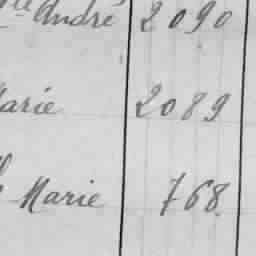 André 2090
Marie 2089
Marie 768.